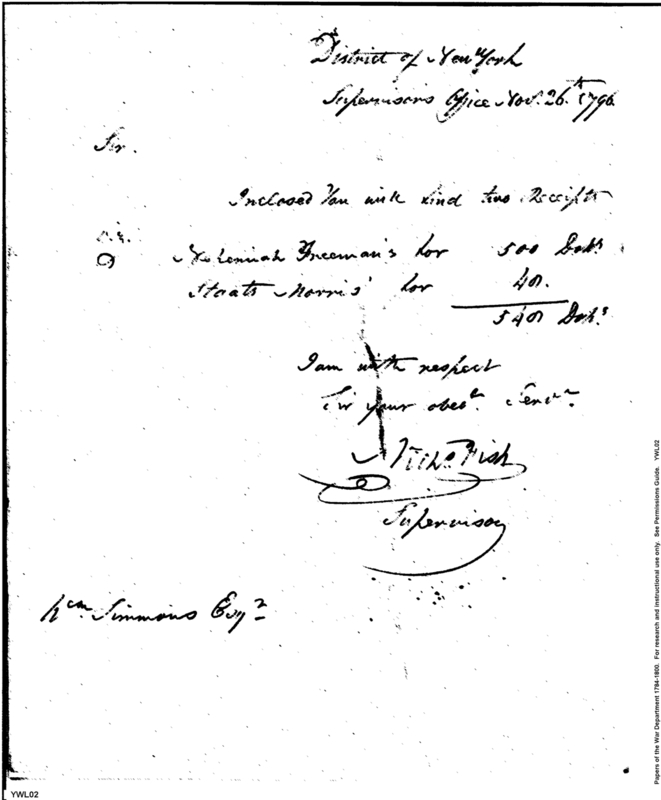 District of New York
Supervisors Office Nov. 26th 1796
Sir.
Inclosed You will find two Receipts
Viz.
Nehemiah Freeman's for 500 Dolls
Staats Morris' for 40.
540 Dolls
I am with respect
Sir your obedt. Servt.
Nichs Fish
Supervisor
Wm Simmons Esqr
Papers of the War Department 1784-1800. For research and instructional use only. See Permissions Guide. YWL02
YWL02